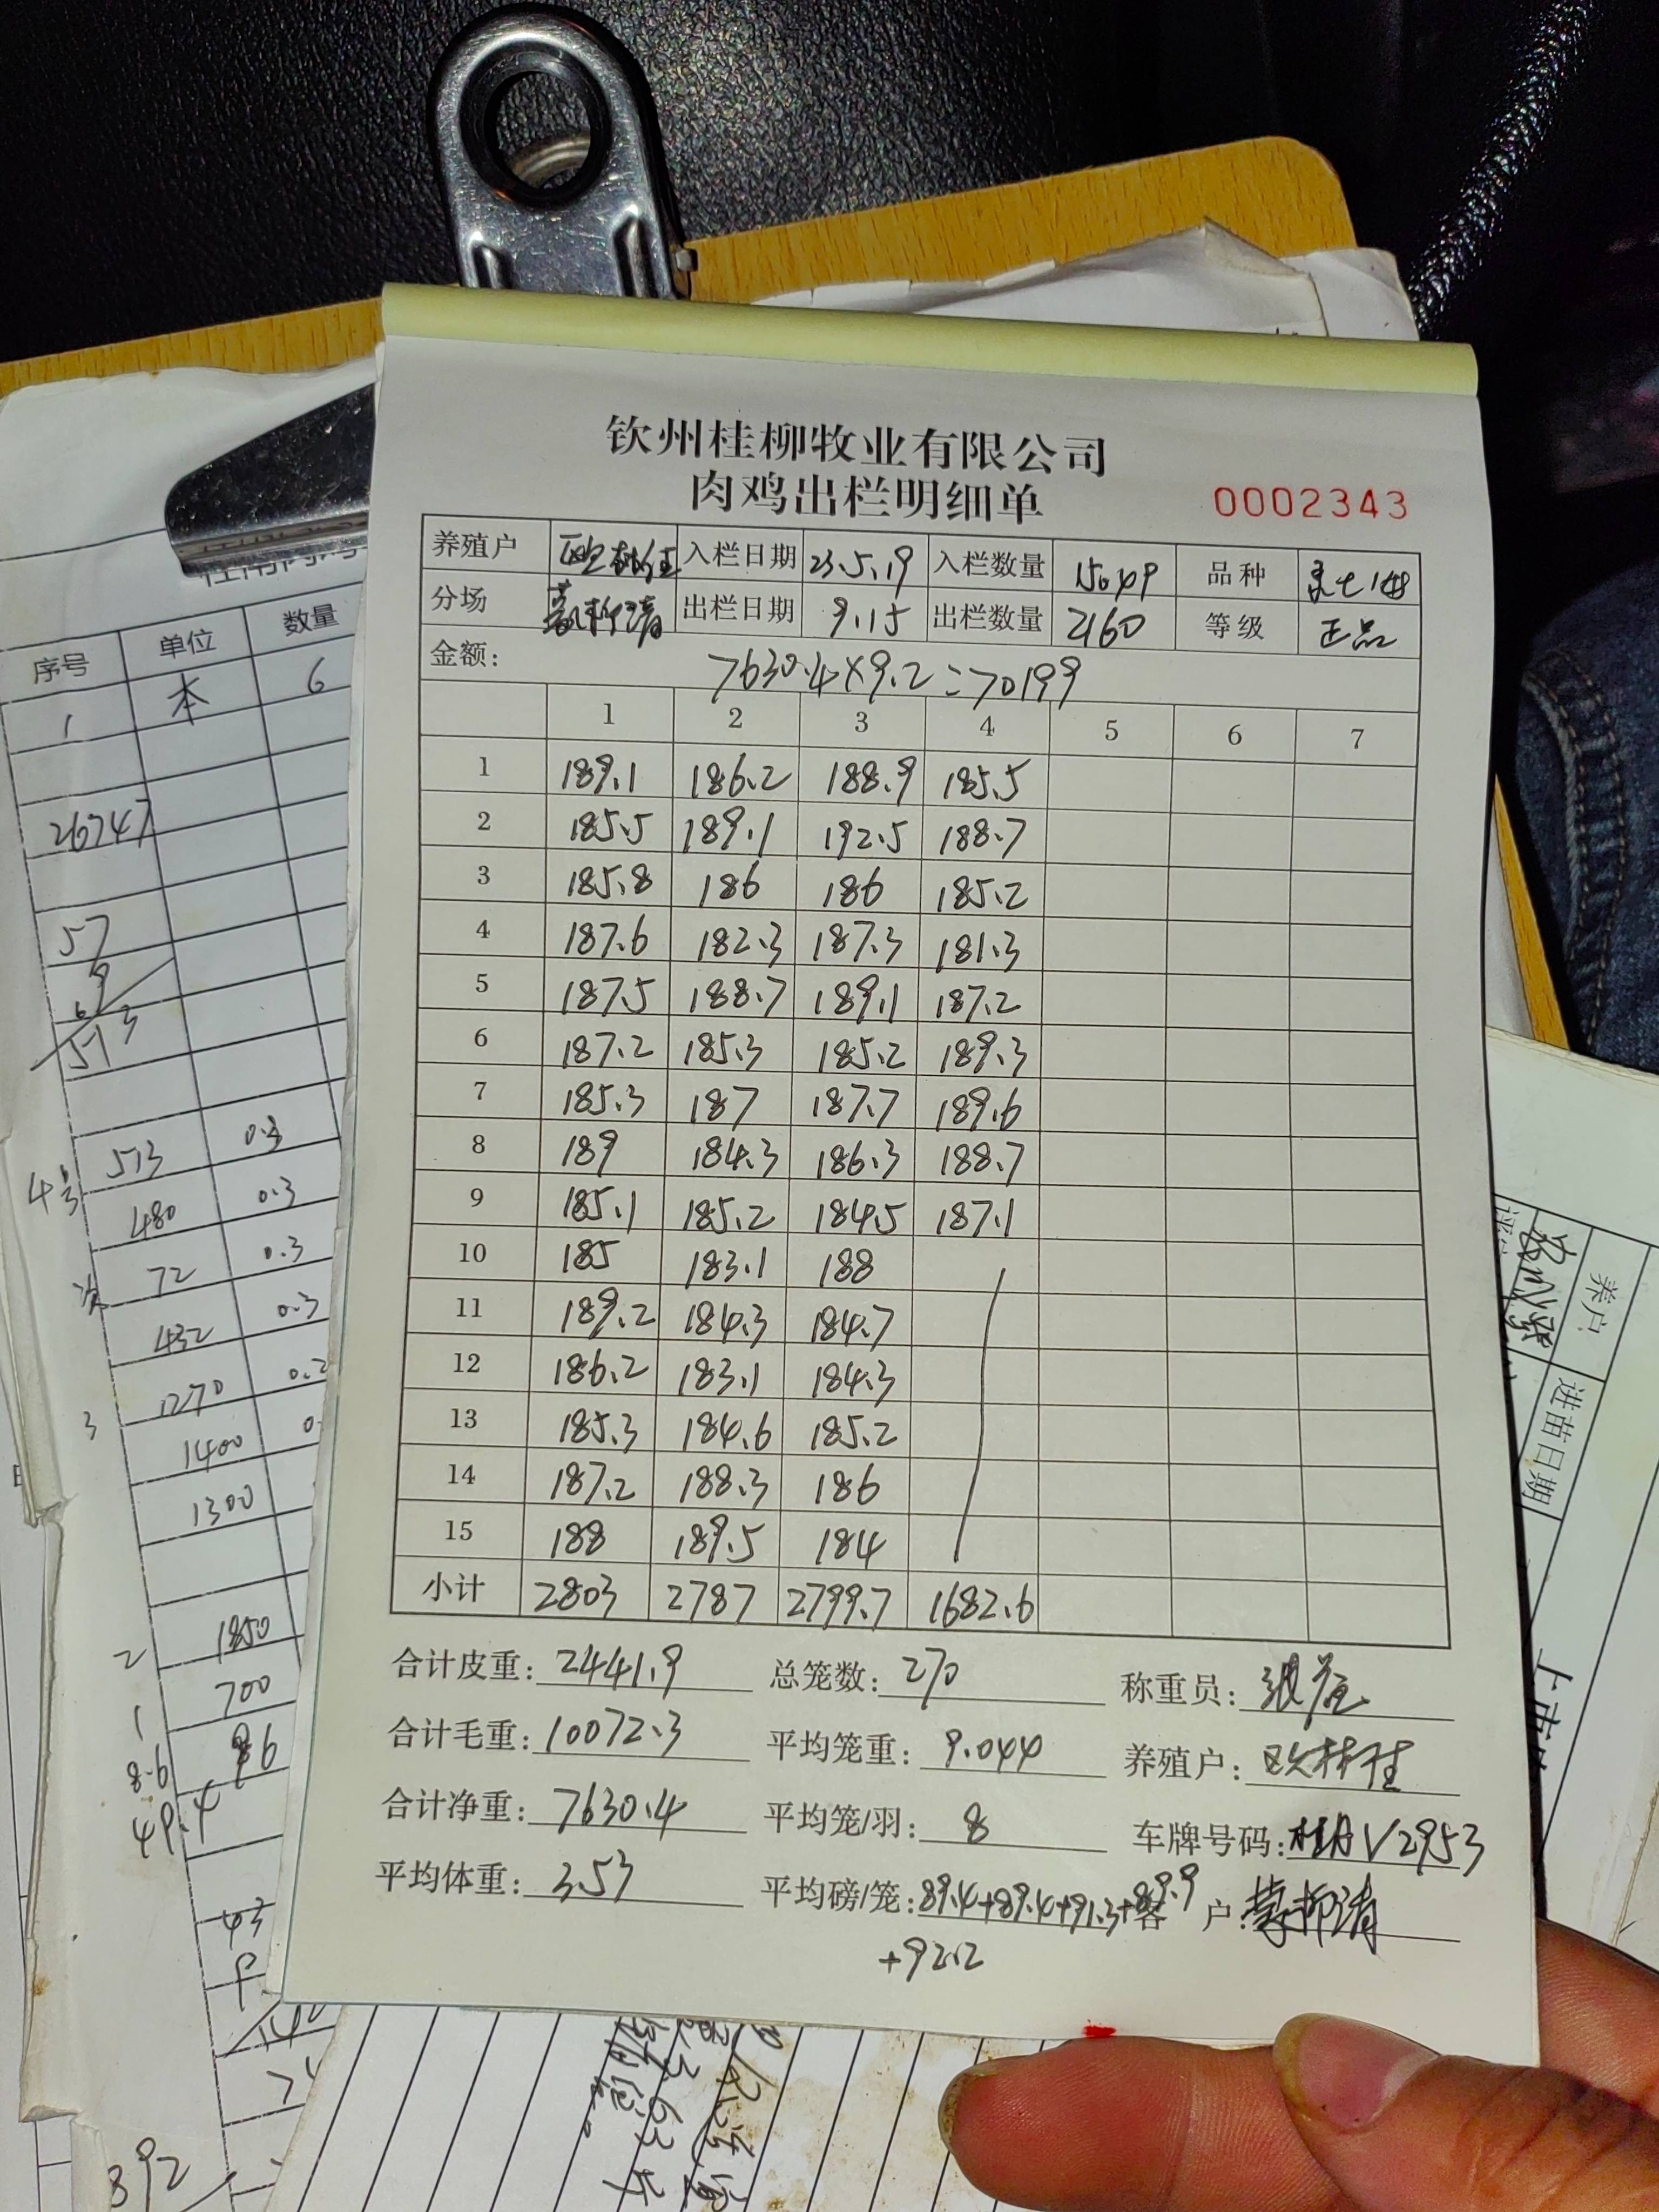 钦州桂柳牧业有限公司
肉鸡出栏明细单 0002343
养殖户 入栏日期 23.5.19 入栏数量 15049 品种
分场 蒙柳清 出栏日期 9.15 出栏数量 2160 等级 正品
金额: 7630.4×9.2=70199
1 2 3 4 5 6 7
1 189.1 186.2 188.9 185.5
2 185.5 189.1 192.5 188.7
3 185.8 186 186 185.2
4 187.6 182.3 187.3 181.3
5 187.5 188.7 189.1 187.2
6 187.2 185.3 185.2 189.3
7 185.3 187 187.7 189.6
8 189 184.3 186.3 188.7
9 185.1 185.2 184.5 187.1
10 185 183.1 188
11 189.2 184.3 184.7
12 186.2 183.1 184.3
13 185.3 184.6 185.2
14 187.2 188.3 186
15 188 189.5 184
小计 2803 2787 2799.7 1682.6
合计皮重: 2441.9 总笼数: 270 称重员:
合计毛重: 10072.3 平均笼重: 9.044 养殖户:
合计净重: 7630.4 平均笼/羽: 8 车牌号码: 桂A V2953
平均体重: 3.53 平均磅/笼: 89.4+89.4+91.3+89.9 客户: 蒙柳清
+92.2
序号 单位 数量
1 本 6
26747
57
9
513
4号 513 0.3
480 0.3
72 0.3
432 0.3
3 1270 0.2
1400 0.
1300
2 1850
1 700
8.6 86
49.4
43
9
392
养户
进苗日期
上市